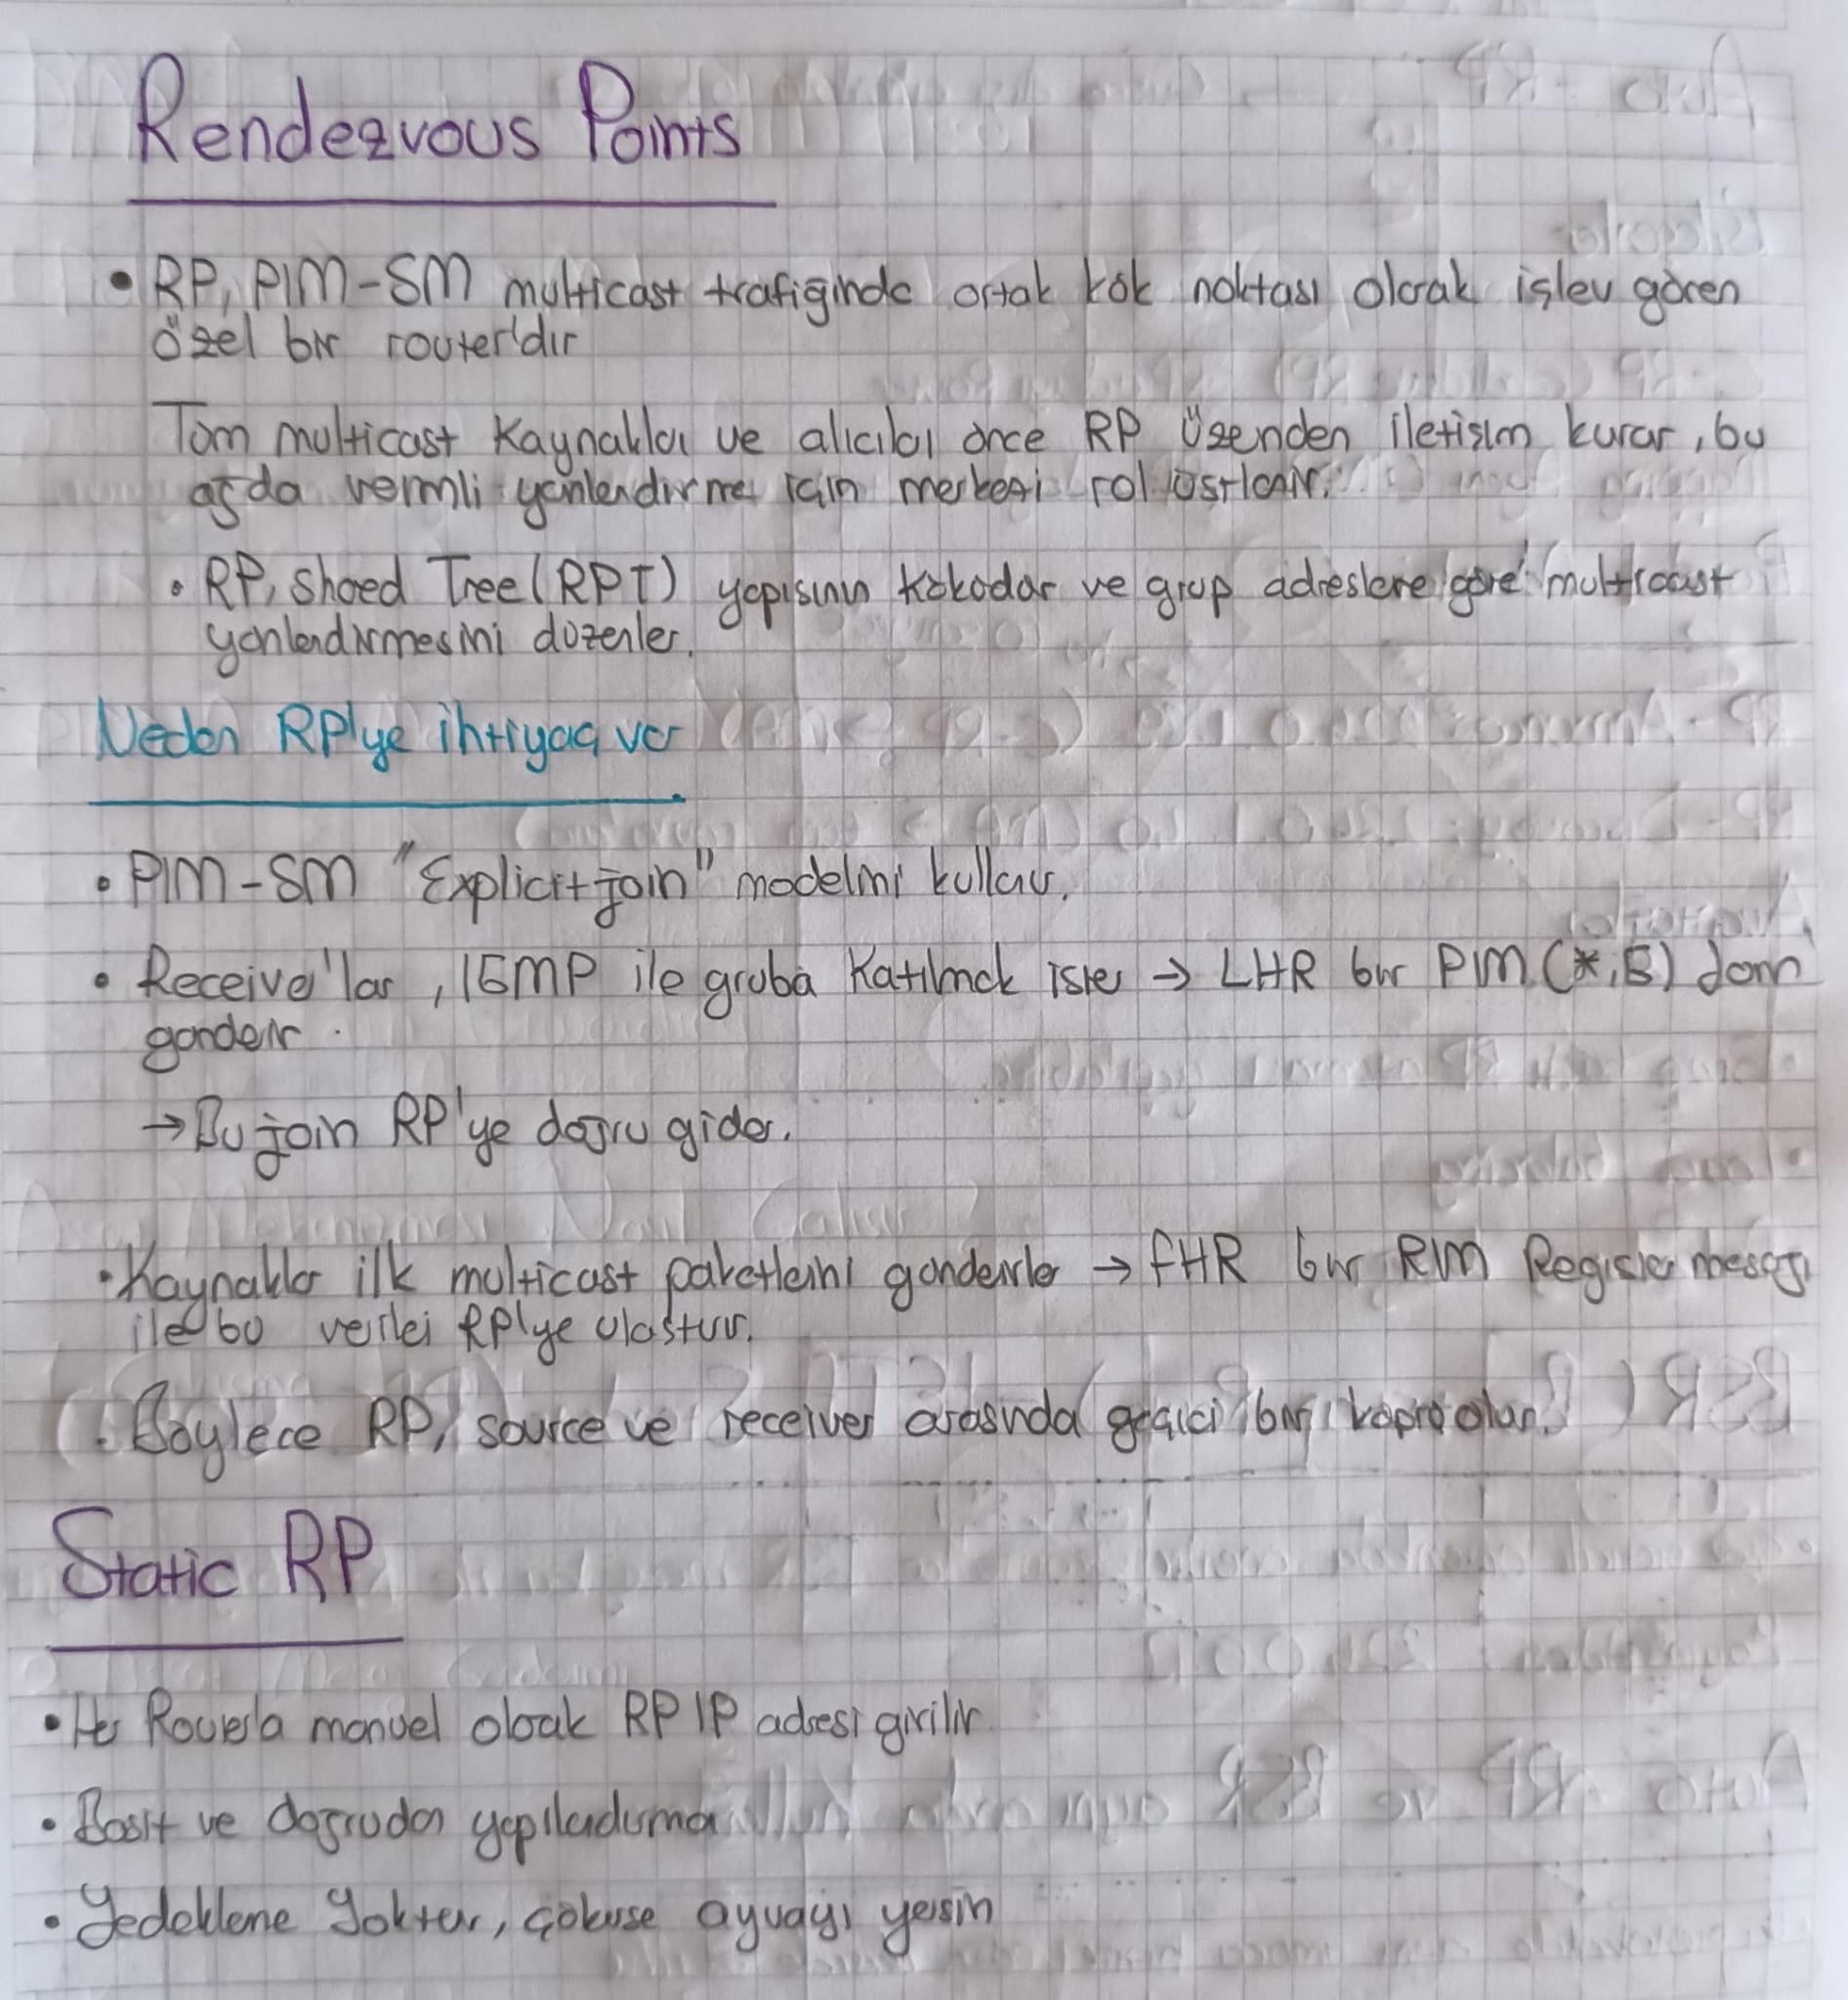 Rendezvous Points
• RP, PIM-SM multicast trafiğinde ortak kök noktası olarak işlev gören
özel bir router'dır
Tüm multicast Kaynakları ve alıcıları önce RP üzerinden iletisim kurar, bu
ağda verimli yönlendirme için merkezi rol üstlenir.
• RP, Shared Tree (RPT) yapısının köküdür ve grup adreslere göre multicast
yönlendirmesini düzenler.
Neden RP'ye ihtiyaç var
• PIM-SM "Explicit join" modelini kullanır.
• Receive'lar, IGMP ile gruba Katılmak ister → LHR bir PIM (*,G) Join
gönderir.
→ Bu join RP'ye doğru gider.
• Kaynaklar ilk multicast paketlerini gönderirler → FHR bir PIM Register mesajı
ile bu verileri RP'ye ulastırır.
• Böylece RP, source ve receiver arasında geçici bir köprü olur.
Static RP
• Her Routerla manuel olarak RP IP adresi girilir
• Basit ve doğrudan yapılandırma
• Yedekleme Yoktur, çökerse ayvayı yersin